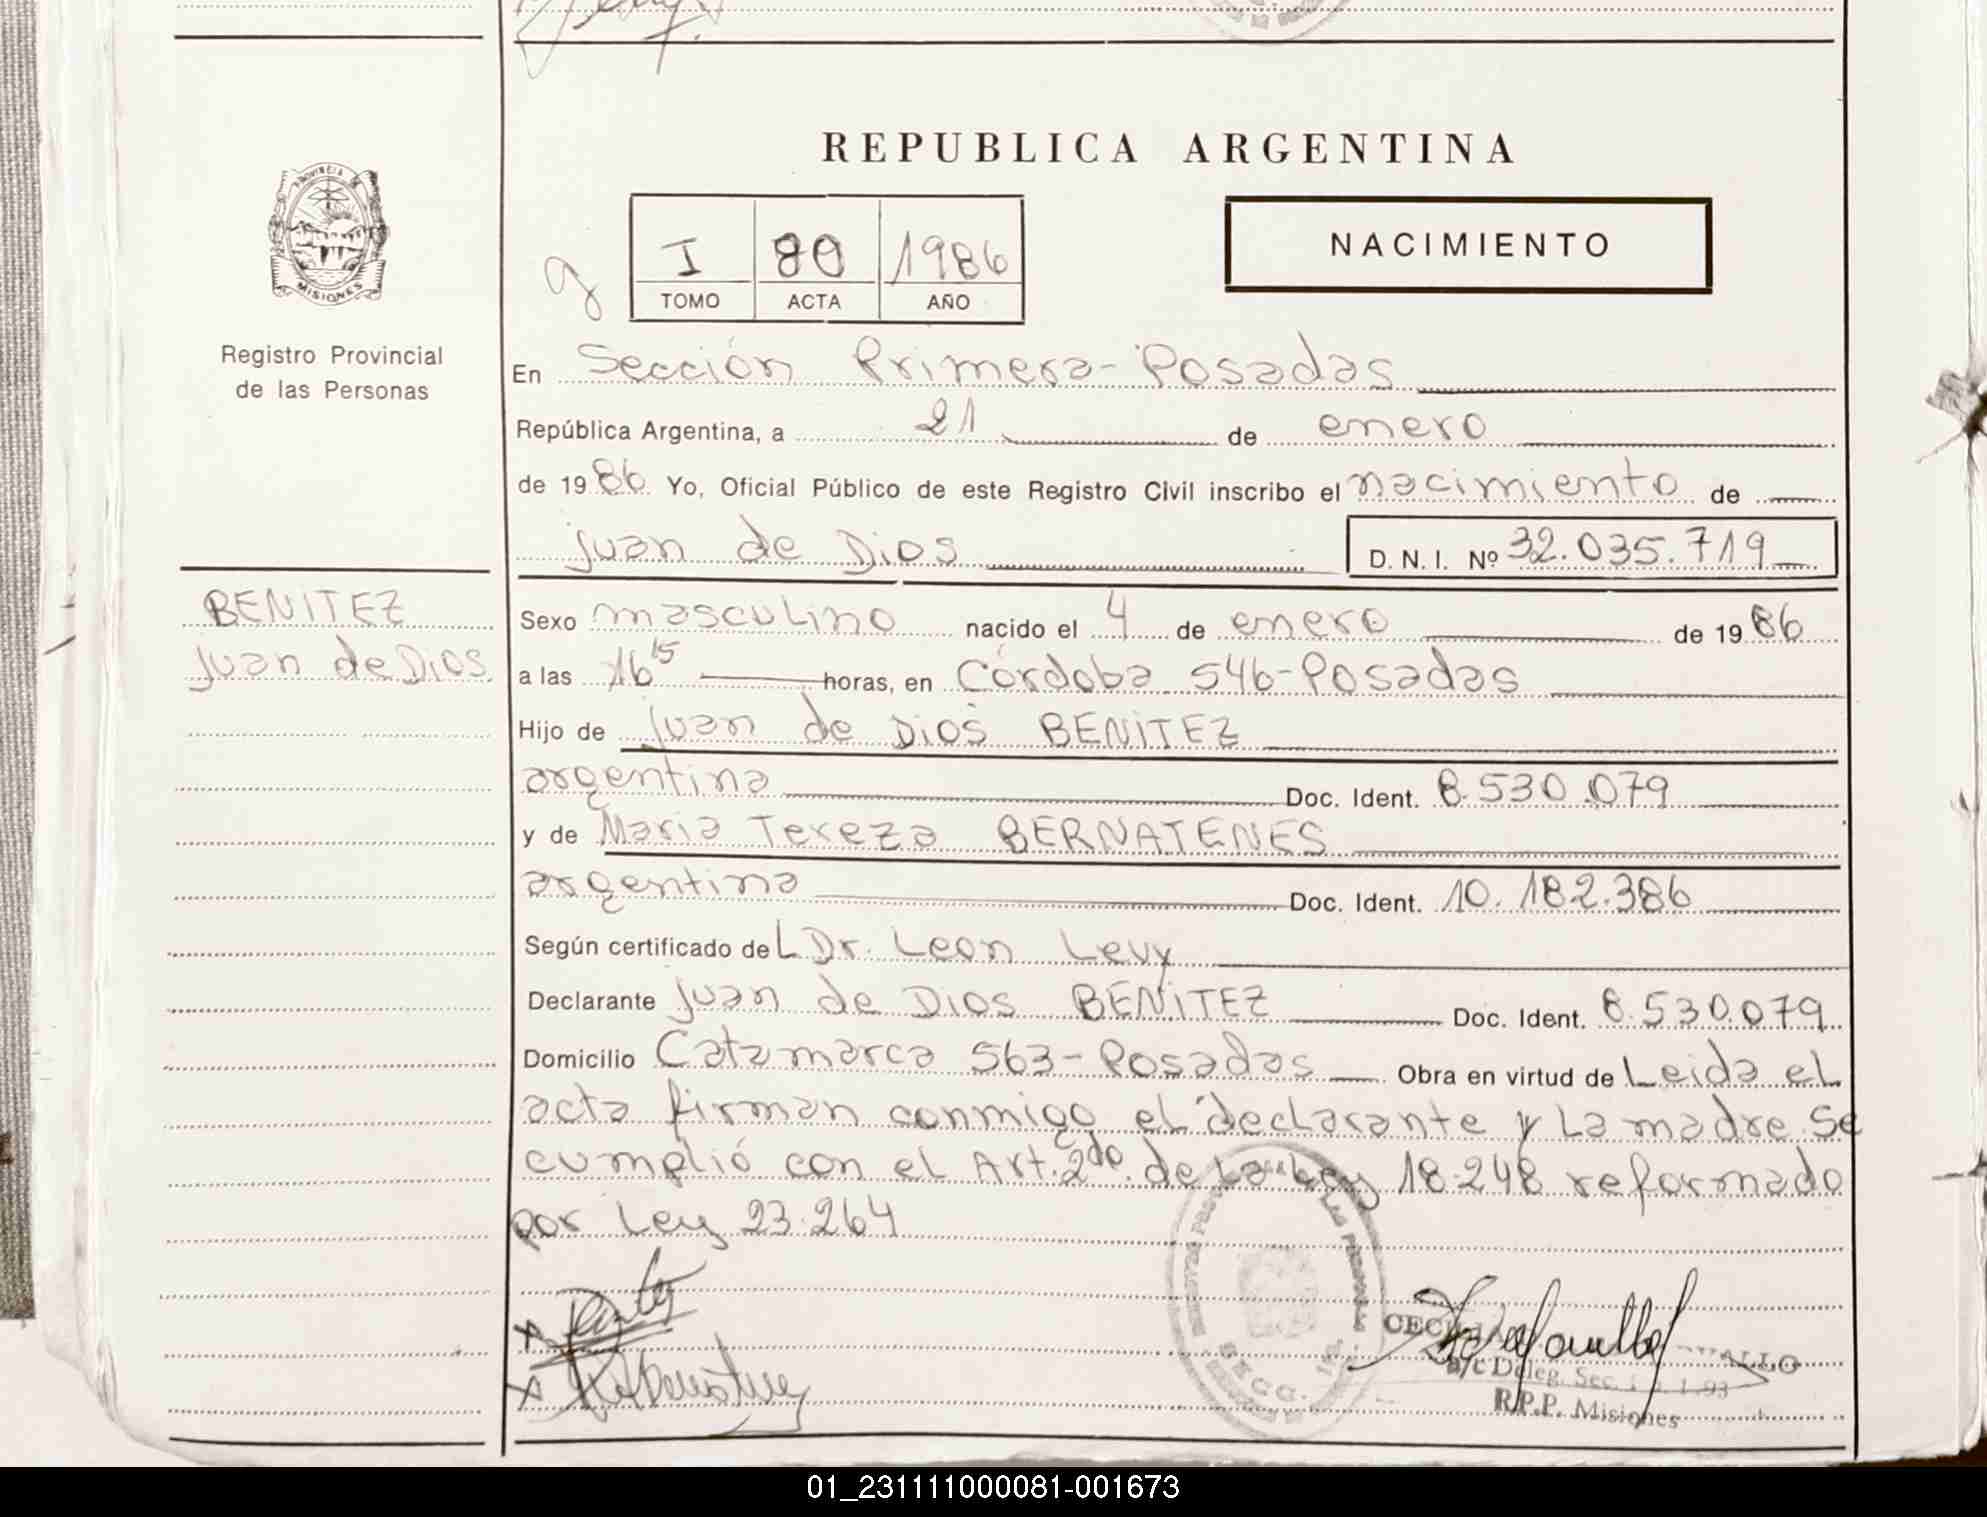 REPUBLICA ARGENTINA
PROVINCIA DE
MISIONES
Registro Provincial
de las Personas
I 80 1986
TOMO ACTA AÑO
NACIMIENTO
En Sección Primera-Posadas
República Argentina, a 21 de enero
de 1986 Yo, Oficial Público de este Registro Civil inscribo el nacimiento de
Juan de Dios D. N. I. Nº 32.035.719
BENITEZ
Juan de Dios
Sexo masculino nacido el 4 de enero de 1986
a las 16 15 horas, en Córdoba 546-Posadas
Hijo de Juan de Dios BENITEZ
argentina Doc. Ident. 8.530.079
y de Maria Tereza BERNATENES
argentina Doc. Ident. 10.182.386
Según certificado deL Dr. Leon Levy
Declarante Juan de Dios BENITEZ Doc. Ident. 8.530.079
Domicilio Catamarca 563-Posadas Obra en virtud de Leida el
acta firman conmigo el declarante y La madre se
cumplió con el Art. 2do. de La Ley 18.248 reformado
por Ley 23.264
a/c Deleg. Sec.
R.P.P. Misiones
01_231111000081-001673